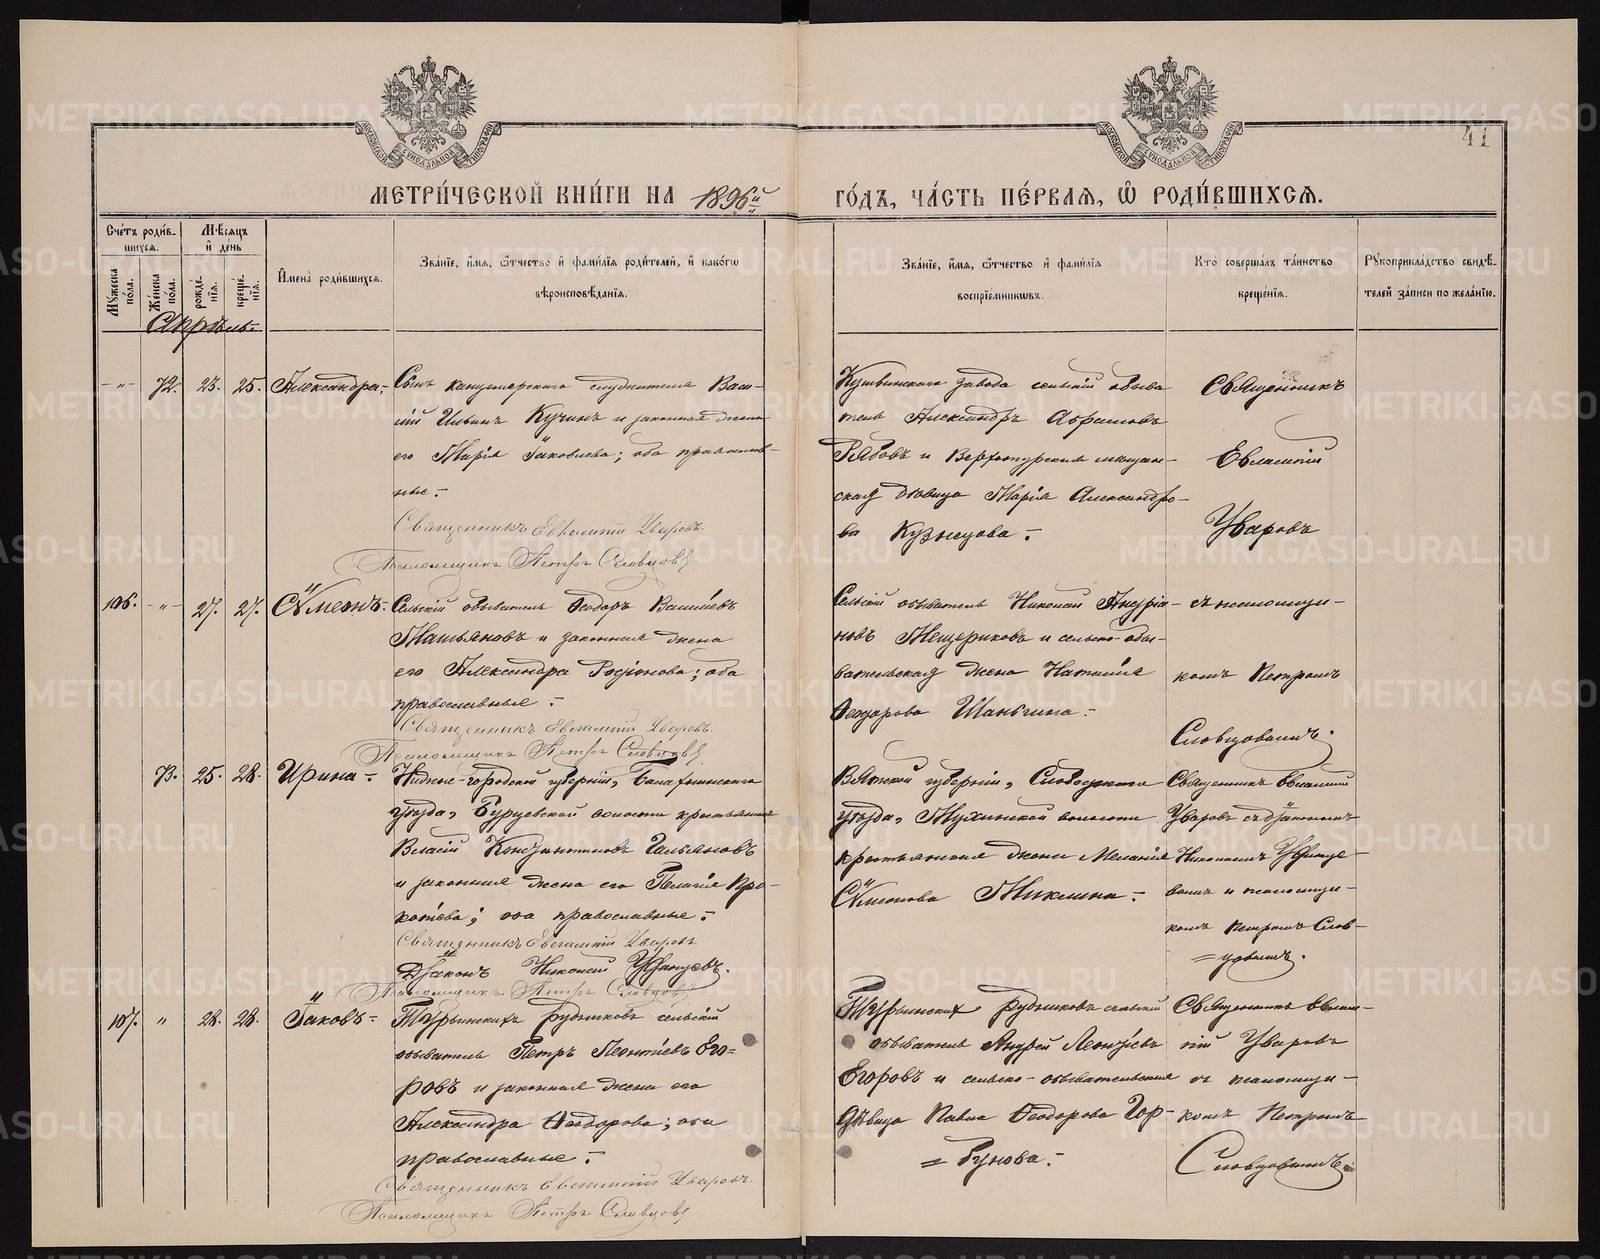 41
МЕТРИ́ЧЕСКОЙ КНИ́ГИ НА 1896й
ГО́ДЪ, ЧА́СТЬ ПЕ́РВАЯ, Ѿ РОДИ́ВШИХСЯ.
Сче́тъ роди́в-
шихся.
Мѣ́сяцъ
и҆ де́нь
Мꙋ́жеска по́ла.
Же́нска по́ла.
рожде́-нїѧ.
креще́-нїѧ.
И҆мена̀ роди́вшихся.
Зва́нїе, и҆́мѧ, ѻ҆́тчество и҆ фами́лїѧ роди́телей, и҆ како́гѡ
вѣроисповѣ́данїѧ.
Зва́нїе, и҆́мѧ, ѻ҆́тчество и҆ фами́лїѧ
воспрїе́мникѡвъ.
Кто̀ соверша́лъ та́инство
креще́нїѧ.
Рꙋкоприкла́дство свидѣ́-
телей за́писи по жела́нїю.
Апрѣль.
-"- 72. 23. 25. Александра.
канцелярскаго служителя Васи-
лій Ильинъ Кучинъ и законная жена
его Марія Іаковлева; оба православ-
ные.
Священникъ Евѳимій Уваровъ.
Псаломщикъ Петръ Словцовъ
Кушвинскаго завода сельскій обыва
тель Александръ Абрамовъ
Рябовъ и Верхотурская мѣщан-
ская дѣвица Марія Александро-
ва Кузнецова.
Священникъ
Евѳимій
Уваровъ
106. -"- 27. 27. Сѵмеонъ.
Сельскій обыватель Ѳеодоръ Васильевъ
и законная жена
его Александра Родіонова; оба
православные.
Священникъ Евѳимій Уваровъ.
Псаломщикъ Петръ Словцовъ
Сельскій обыватель Николай Андріа-
новъ Мещериковъ и сельско-обы-
вательская жена Наталія
Ѳеодорова Шаньгина.
съ псаломщи-
комъ Петромъ
Словцовымъ.
73. 25. 28. Ирина.
Ниже-городской губерніи, Балахнинскаго
уѣзда, Бурцевской волости крестьянинъ
Власій Константиновъ Гальяновъ
и законная жена его Пелагія Про-
копіева; оба православные.
Священникъ Евѳимій Уваровъ
Діаконъ Николай
Псаломщикъ Петръ Словцовъ
Вятской губерніи, Слободскаго
уѣзда, Мухинской волости
крестьянская жена Меланія
Сѵмеонова Микмина.
Священникъ Евѳимій
Уваровъ съ діакономъ
Николаемъ
вымъ и псаломщи-
комъ Петромъ Слов-
=цовымъ.
107. " 28. 28. Іаковъ.
Турьинскихъ рудниковъ сельскій
обыватель Петръ Леонтіевъ Его=
ровъ и законная жена его
Александра Ѳеодорова; оба
православные.
Священникъ Евѳимій Уваровъ.
Псаломщикъ Петръ Словцовъ
Турьинскихъ рудниковъ сельскій
обыватель Андрей Леонтіевъ
Егоровъ и сельско-обывательская
дѣвица Павла Ѳеодорова Гор-
=бунова.
Священникъ Евѳи-
мій Уваровъ
съ псаломщи-
комъ Петромъ
Словцовымъ.
METRIKI.GASO-URAL.RU